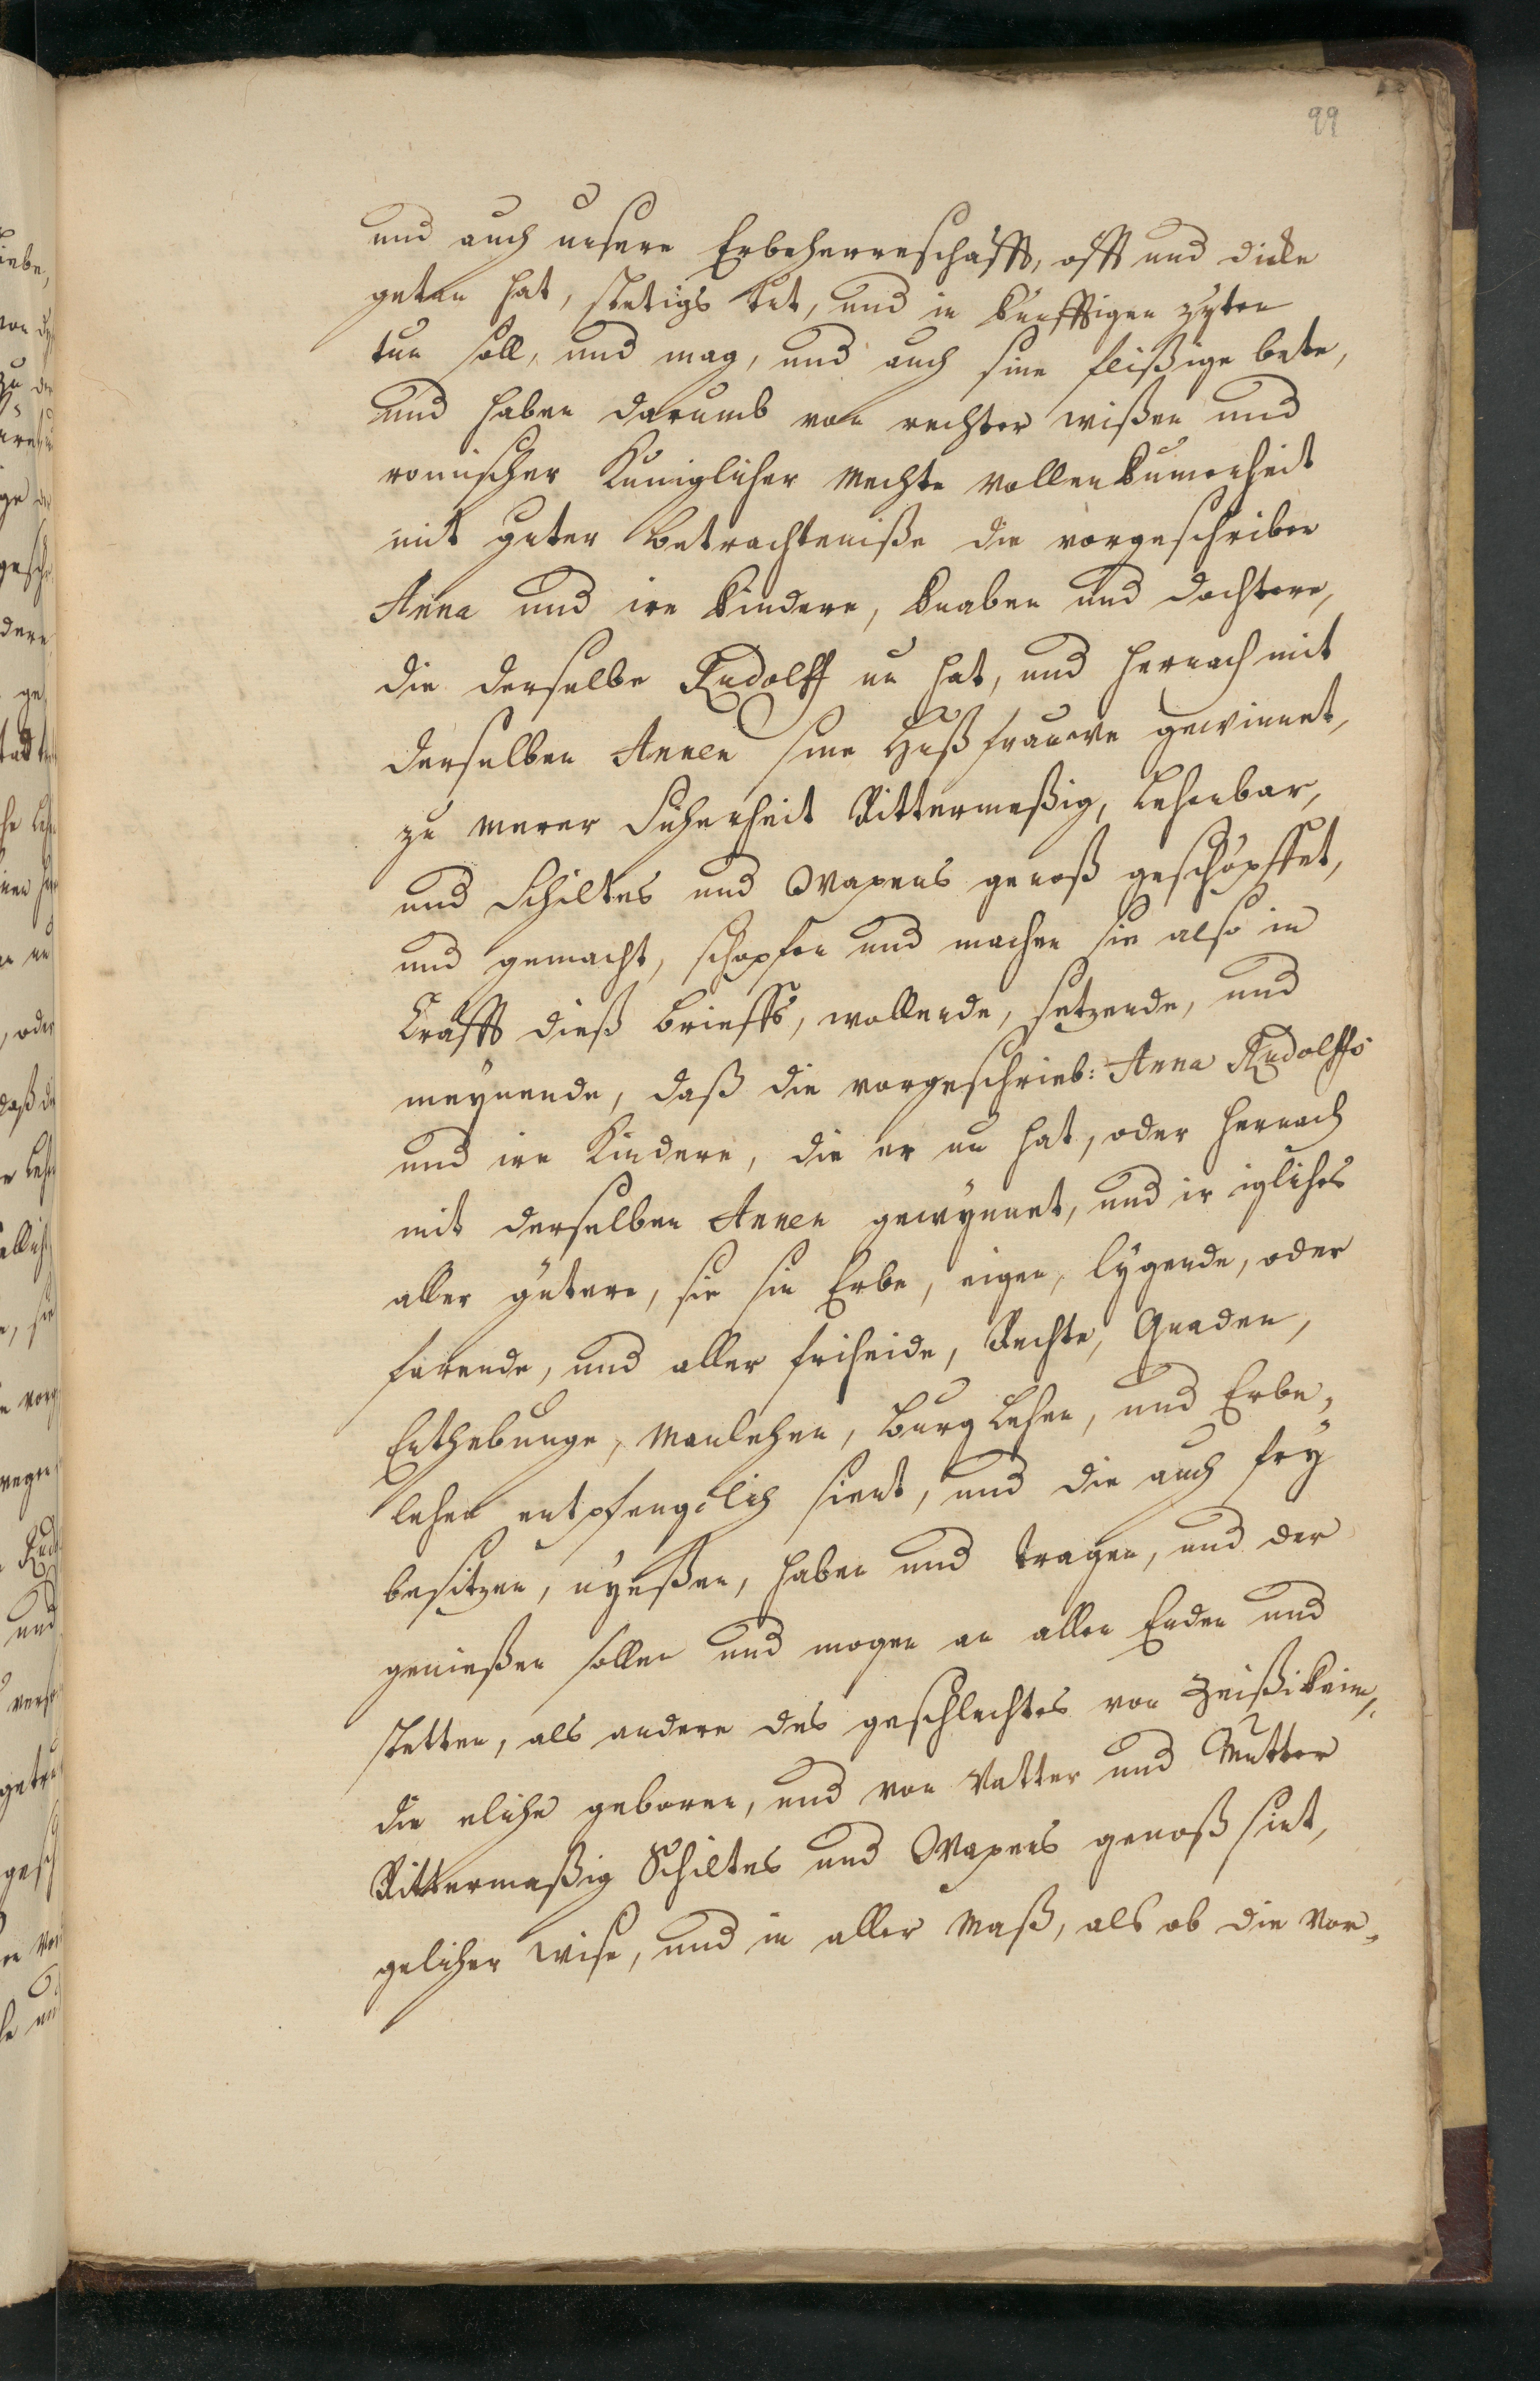 99
und auch unsere Erbeherreschafft, offt und dicke
getan hat, stetigs tut, und in künfftigen zyten
tun soll, und mag, und auch sine fleißige bete,
und haben darumb von rechter wißen und
romischer Kuniglicher Mechte vollenkumenheit
mit guter Betrachteniße die vorgeschriben
Anna und ire kindere, knaben und dochtere,
die derselbe Rudolff nu hat, und hernach mit
derselben Annen sine Hußfrauwe gewinnet,
zu merer Sicherheit Rittermeßig, Lehenbar,
und Schiltes und Wapens genoß geschöpffet,
und gemacht, schopfen und machen sie also in
Crafft dieß brieffs, wollende, setzende, und
meynende, daß die vorgeschrieb: Anna Rudolffs
und ire Kindere, die er nu hat, oder hernach
mit derselben Annen gewynnet, und ir igliches
aller gutere, sie sin Erbe, eigen, lygende, oder
farende, und aller friheide, Rechte, Gnaden,
Erthebunge, Manlehen, Burg Lehen, und Erbe,
lehen entpfenglich sient, und die auch fry
besitzen, nyeßen, haben und tragen, und der
genießen sollen und mogen an allen Enden und
stetten, als andere des geschlechtes von Zeißikeim,
die eliche geboren, und von Vatter und Mutter
Rittermeßig Schiltes und Wapens genoß sint,
gelicher wise, und in aller Maß, als ob die Vor-